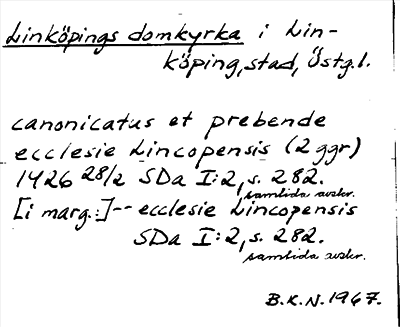 Linköpings domkyrka i Lin-
köping, stad, Östg.l.
canonicatus et prebende
ecclesie Lincopensis (2 ggr)
1426 28/2 SDa I:2, s. 282.
samtida avskr.
[i marg.:]-- ecclesie Lincopensis
SDa I:2, s. 282.
samtida avskr.
B.K.N. 1967.